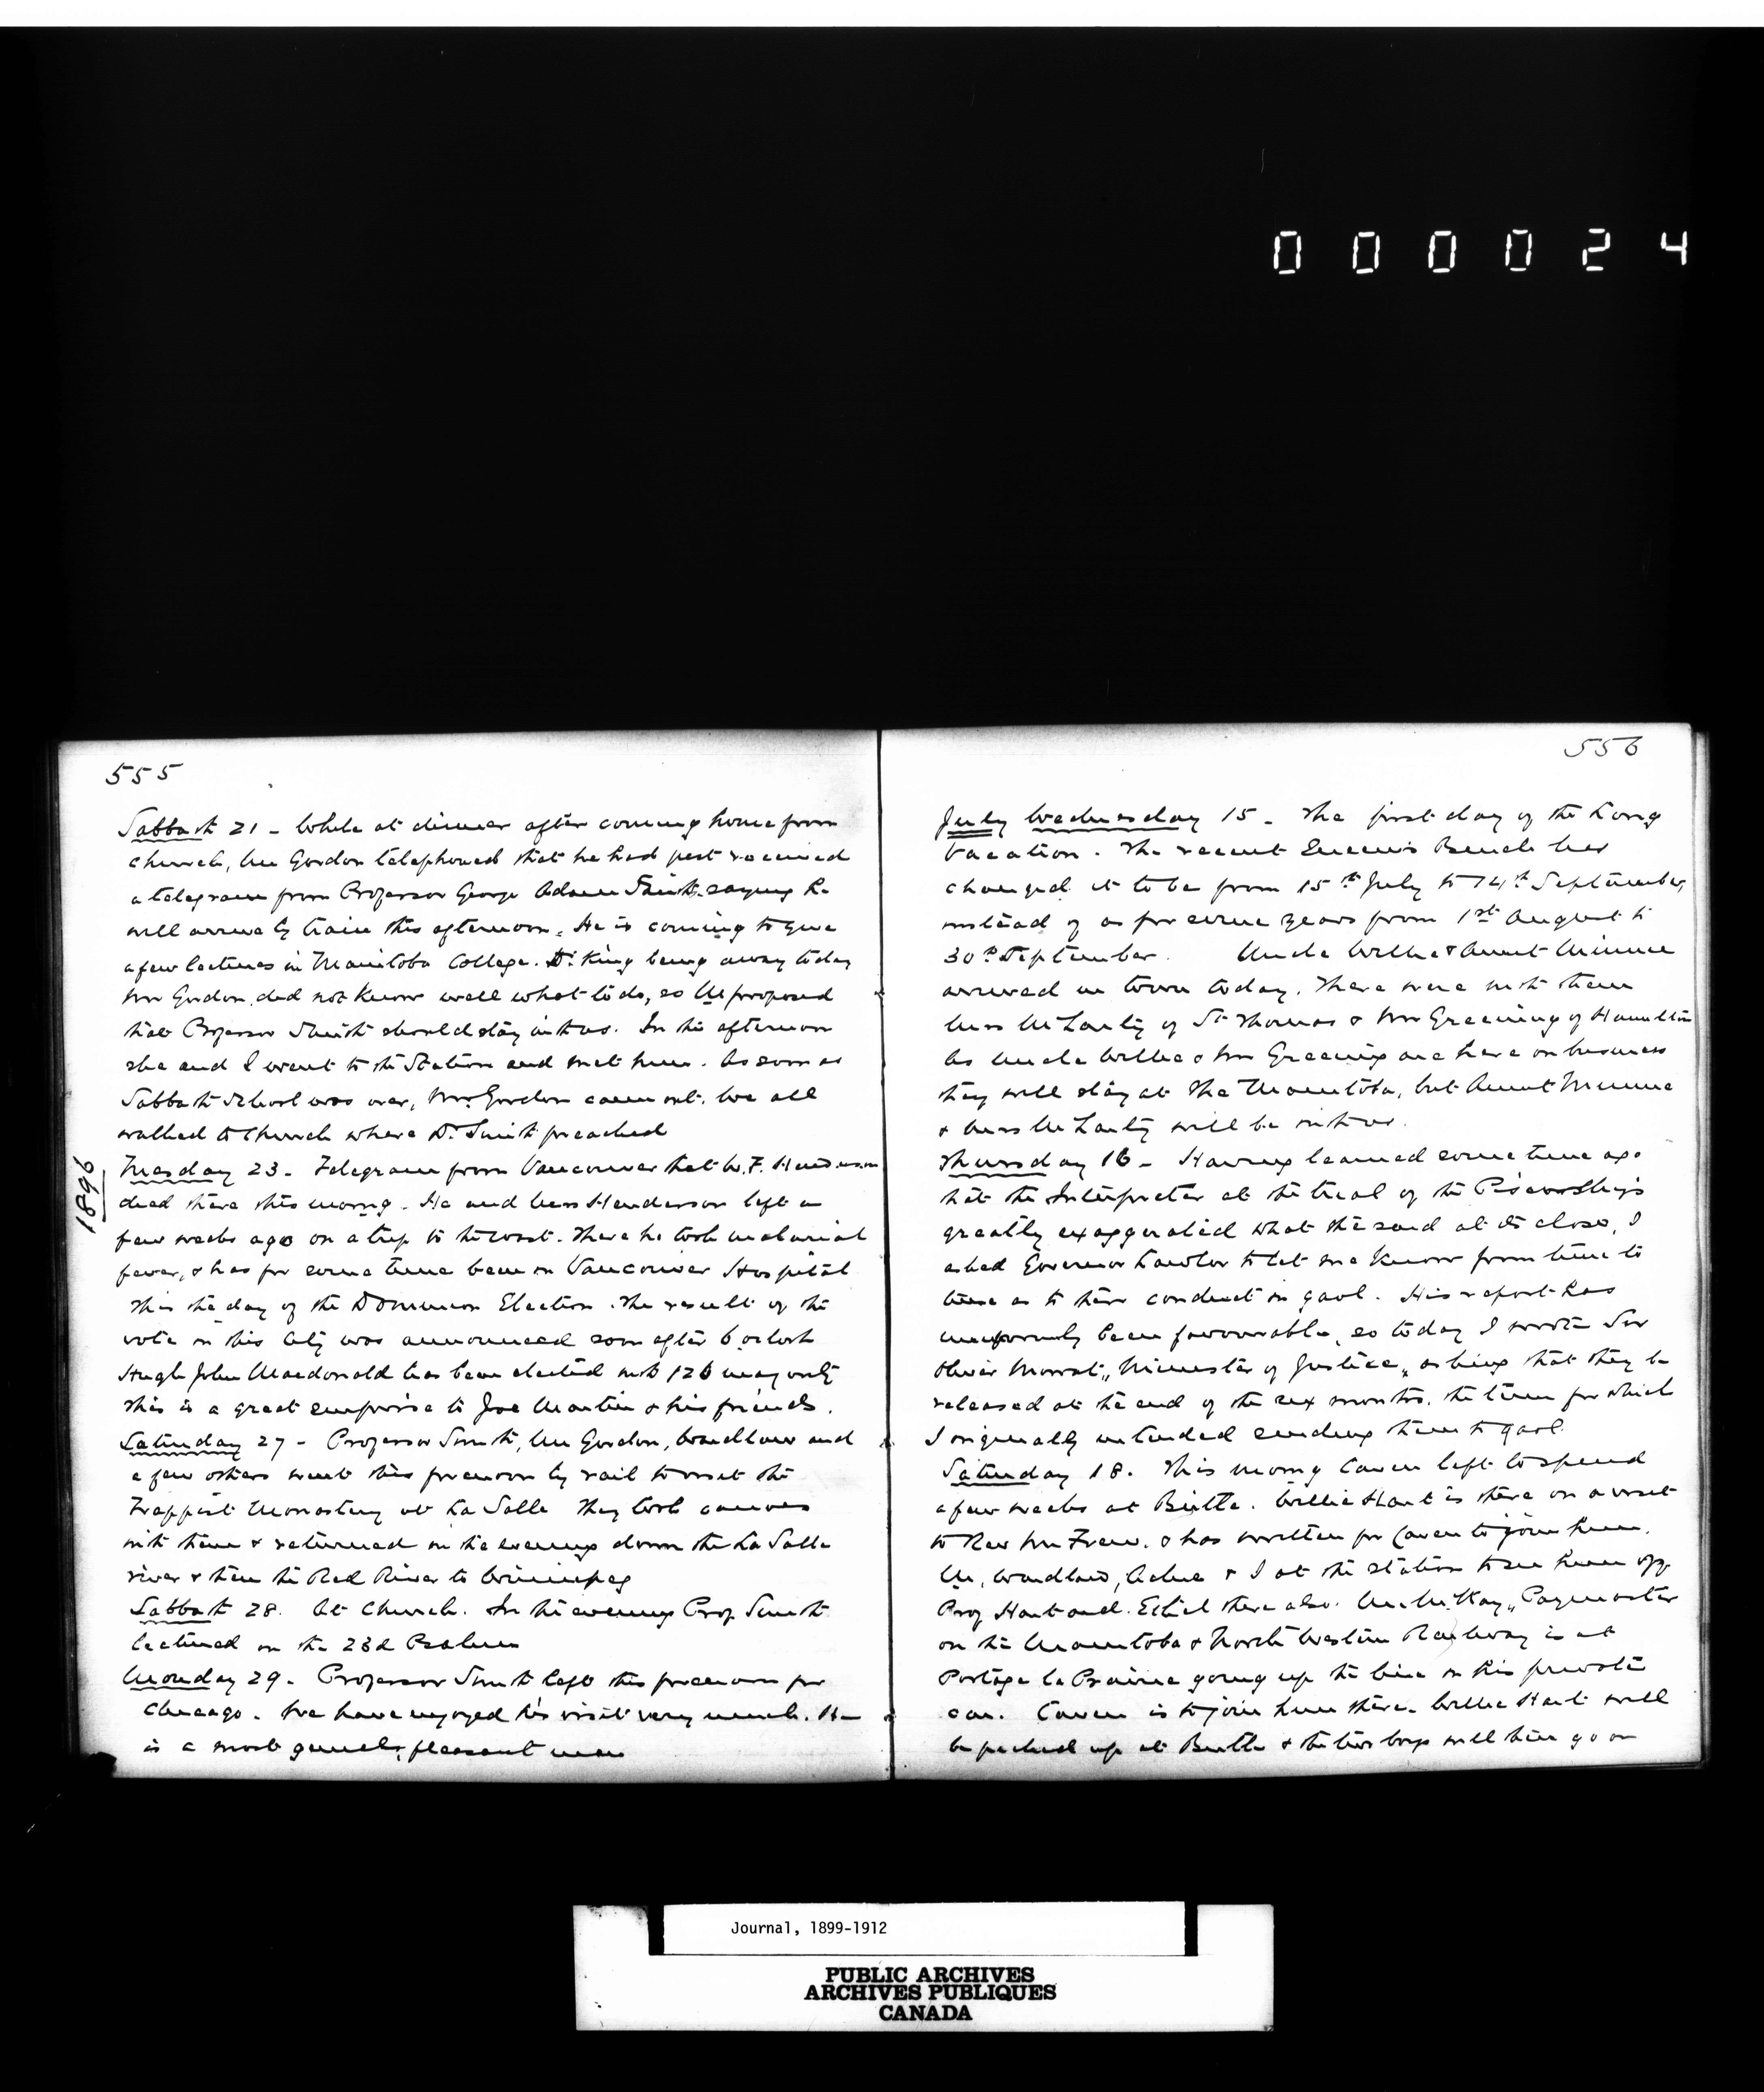 000024
555
Sabbath 21 - While at dinner after coming home from
church, Mr Gordon telephoned that he had just received
a telegram from Professor George Adam Smith saying he
will arrive by train this afternoon. He is coming to give
a few lectures in Manitoba College. Dr King being away today
Mr Gordon did not know well what to do, so M proposed
that Professor Smith should stay with us. In the afternoon
she and I went to the Station and met him. As soon as
Sabbath School was over, Mr Gordon came out. We all
walked to Church where Dr Smith preached
1896
Tuesday 23 - Telegram from Vancouver that W. F. Henderson
died there this morng. He and Mrs Henderson left a
few weeks ago on a trip to the coast. There he took malarial
fever, & has for some time been in Vancouver Hospital
This the day of the Dominion Election. The result of the
vote in this City was announced soon after 6 oclock
Hugh John Macdonald has been elected with 126 majority
This is a great surprise to Joe Martin & his friends.
Saturday 27 - Professor Smith, Mr Gordon, Wardlaw and
a few others went this forenoon by rail to visit the
Trappist Monastery at La Salle They took canoes
with them & returned in the evening down the La Salle
river & then the Red River to Winnipeg
Sabbath 28. At Church. In the evening Prof Smith
lectured on the 23d Psalm
Monday 29. Professor Smith left this forenoon for
Chicago. We have enjoyed his visit very much. He
is a most genuine, pleasant man
556
July Wednesday 15 - The first day of the Long
Vacation. The recent Queen's Bench has
changed it to be from 15th July to 14th September,
instead of as for some years from 1st August to
30th September. Uncle Willie & Aunt Minnie
arrived in town today. There were with them
Miss McLarty of St Thomas & Mr Greening of Hamilton
As Uncle Willie & Mr Greening are here on business
they will stay at The Manitoba, but Aunt Minnie
& Miss McLarty will be with us.
Thursday 16 - Having learned some time ago
that the Interpreter at the trial of the
greatly exaggerated what she said at its close, I
asked Governor Lawlor to let me know from time to
time as to their conduct in gaol. His report has
uniformly been favourable, so today I wrote Sir
Oliver Mowat, Minister of Justice, asking that they be
released at the end of the six months, the time for which
I originally intended sending them to gaol
Saturday 18. This morng Caven left to spend
a few weeks at Birtle. Willie Hart is there on a visit
to Rev Mr Frew, & has written for Caven to join him.
M, Wardlaw, & I at the station to see him off
Prof Hart and Ethel there also. Mr McKay, Paymaster
on the Manitoba & North Western Railway is at
Portage la Prairie going up the line in his private
car. Caven is to join him there. Willie Hart will
be picked up at Birtle & the two boys will then go on
Journal, 1899-1912
PUBLIC ARCHIVES
ARCHIVES PUBLIQUES
CANADA